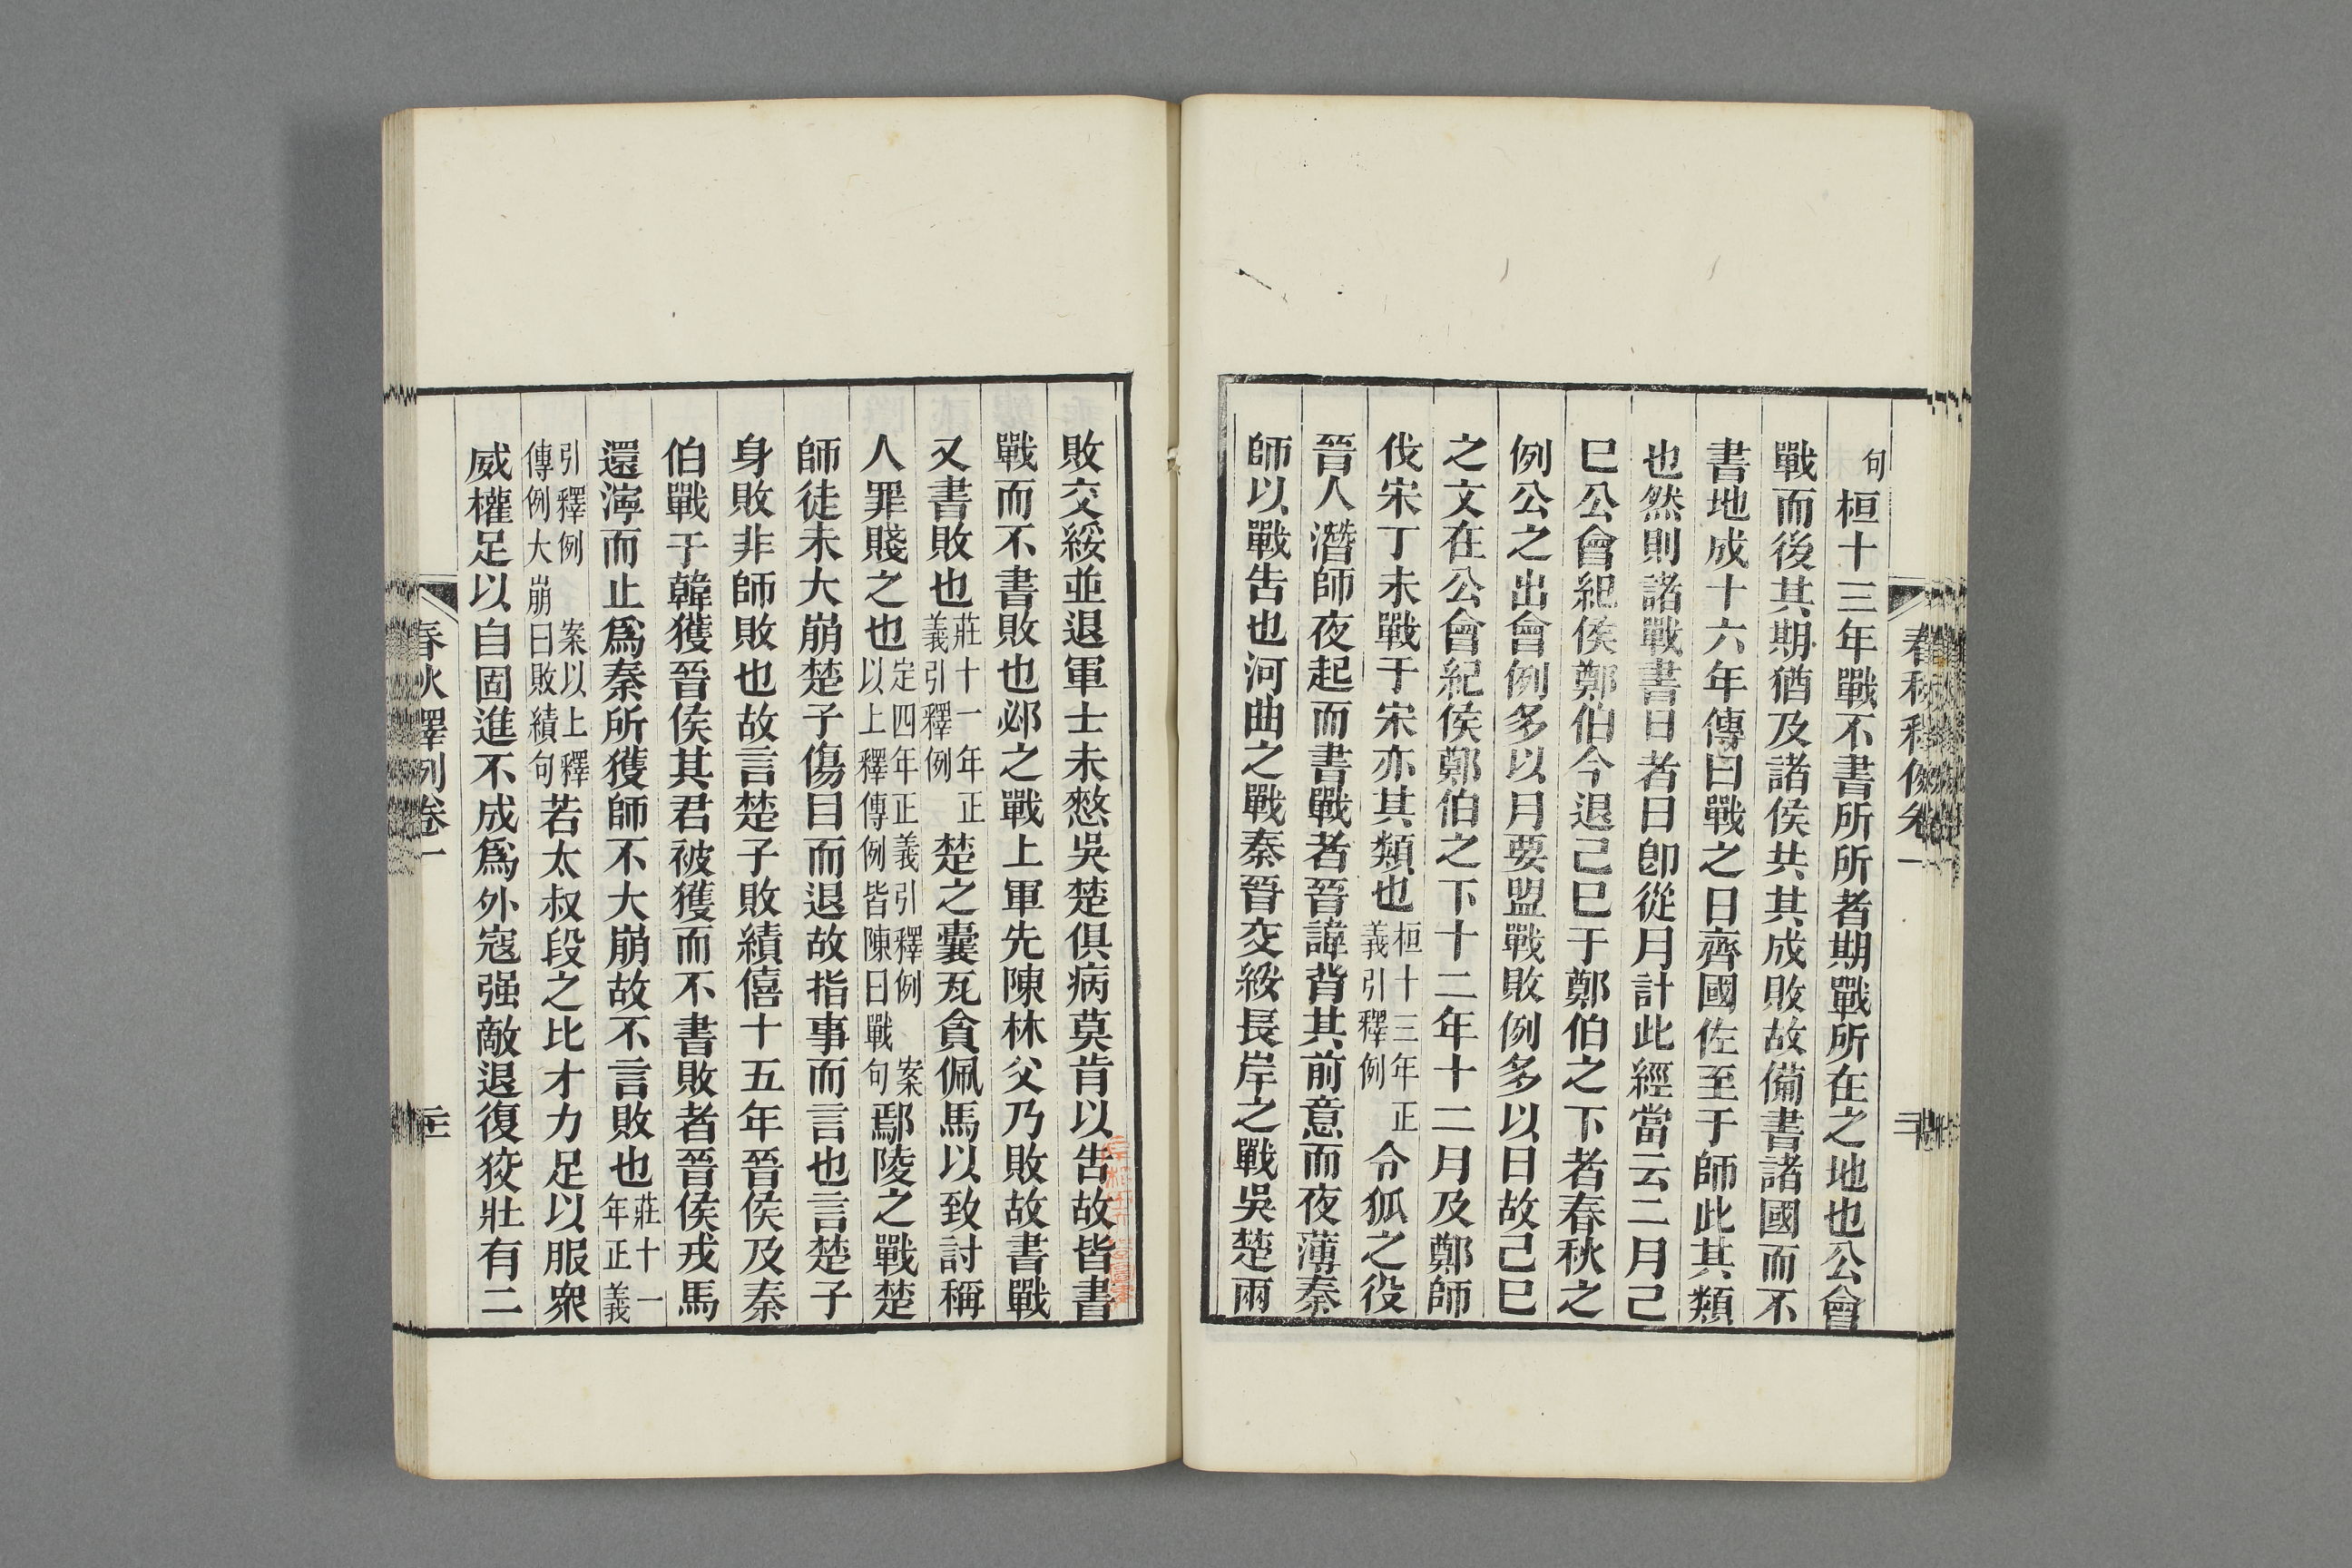 句桓十三年戰不書所所者期戰所在之地也公會
戰而後其期猶及諸侯共其成敗故備書諸國而不
書地成十六年傳曰戰之日齊國佐至于師此其類
也然則諸戰書日者日卽從月計此經當云二月己
巳公會紀侯鄭伯今退己巳于鄭伯之下者春秋之
例公之出會例多以月要盟戰敗例多以日故己巳
之文在公會紀侯鄭伯之下十二年十二月及鄭師
伐宋丁未戰于宋亦其類也桓十三年正義引釋例令狐之役
晉人潛師夜起而書戰者晉諱背其前意而夜薄秦
師以戰告也河曲之戰秦晉交綏長岸之戰吳楚兩
敗交綏並退軍士未憖吳楚俱病莫肯以告故皆書
戰而不書敗也邲之戰上軍先陳林父乃敗故書戰
又書敗也莊十一年正義引釋例楚之囊瓦貪佩馬以致討稱
人罪賤之也定四年正義引釋例案以上釋傳例皆陳曰戰句鄢陵之戰楚
師徒未大崩楚子傷目而退故指事而言也言楚子
身敗非師敗也故言楚子敗績僖十五年晉侯及秦
伯戰于韓獲晉侯其君被獲而不書敗者晉侯戎馬
還濘而止爲秦所獲師不大崩故不言敗也莊十一年正義
引釋例案以上釋傳例大崩曰敗績句若太叔段之比才力足以服衆
威權足以自固進不成爲外寇强敵退復狡壯有二
春秋釋例卷一